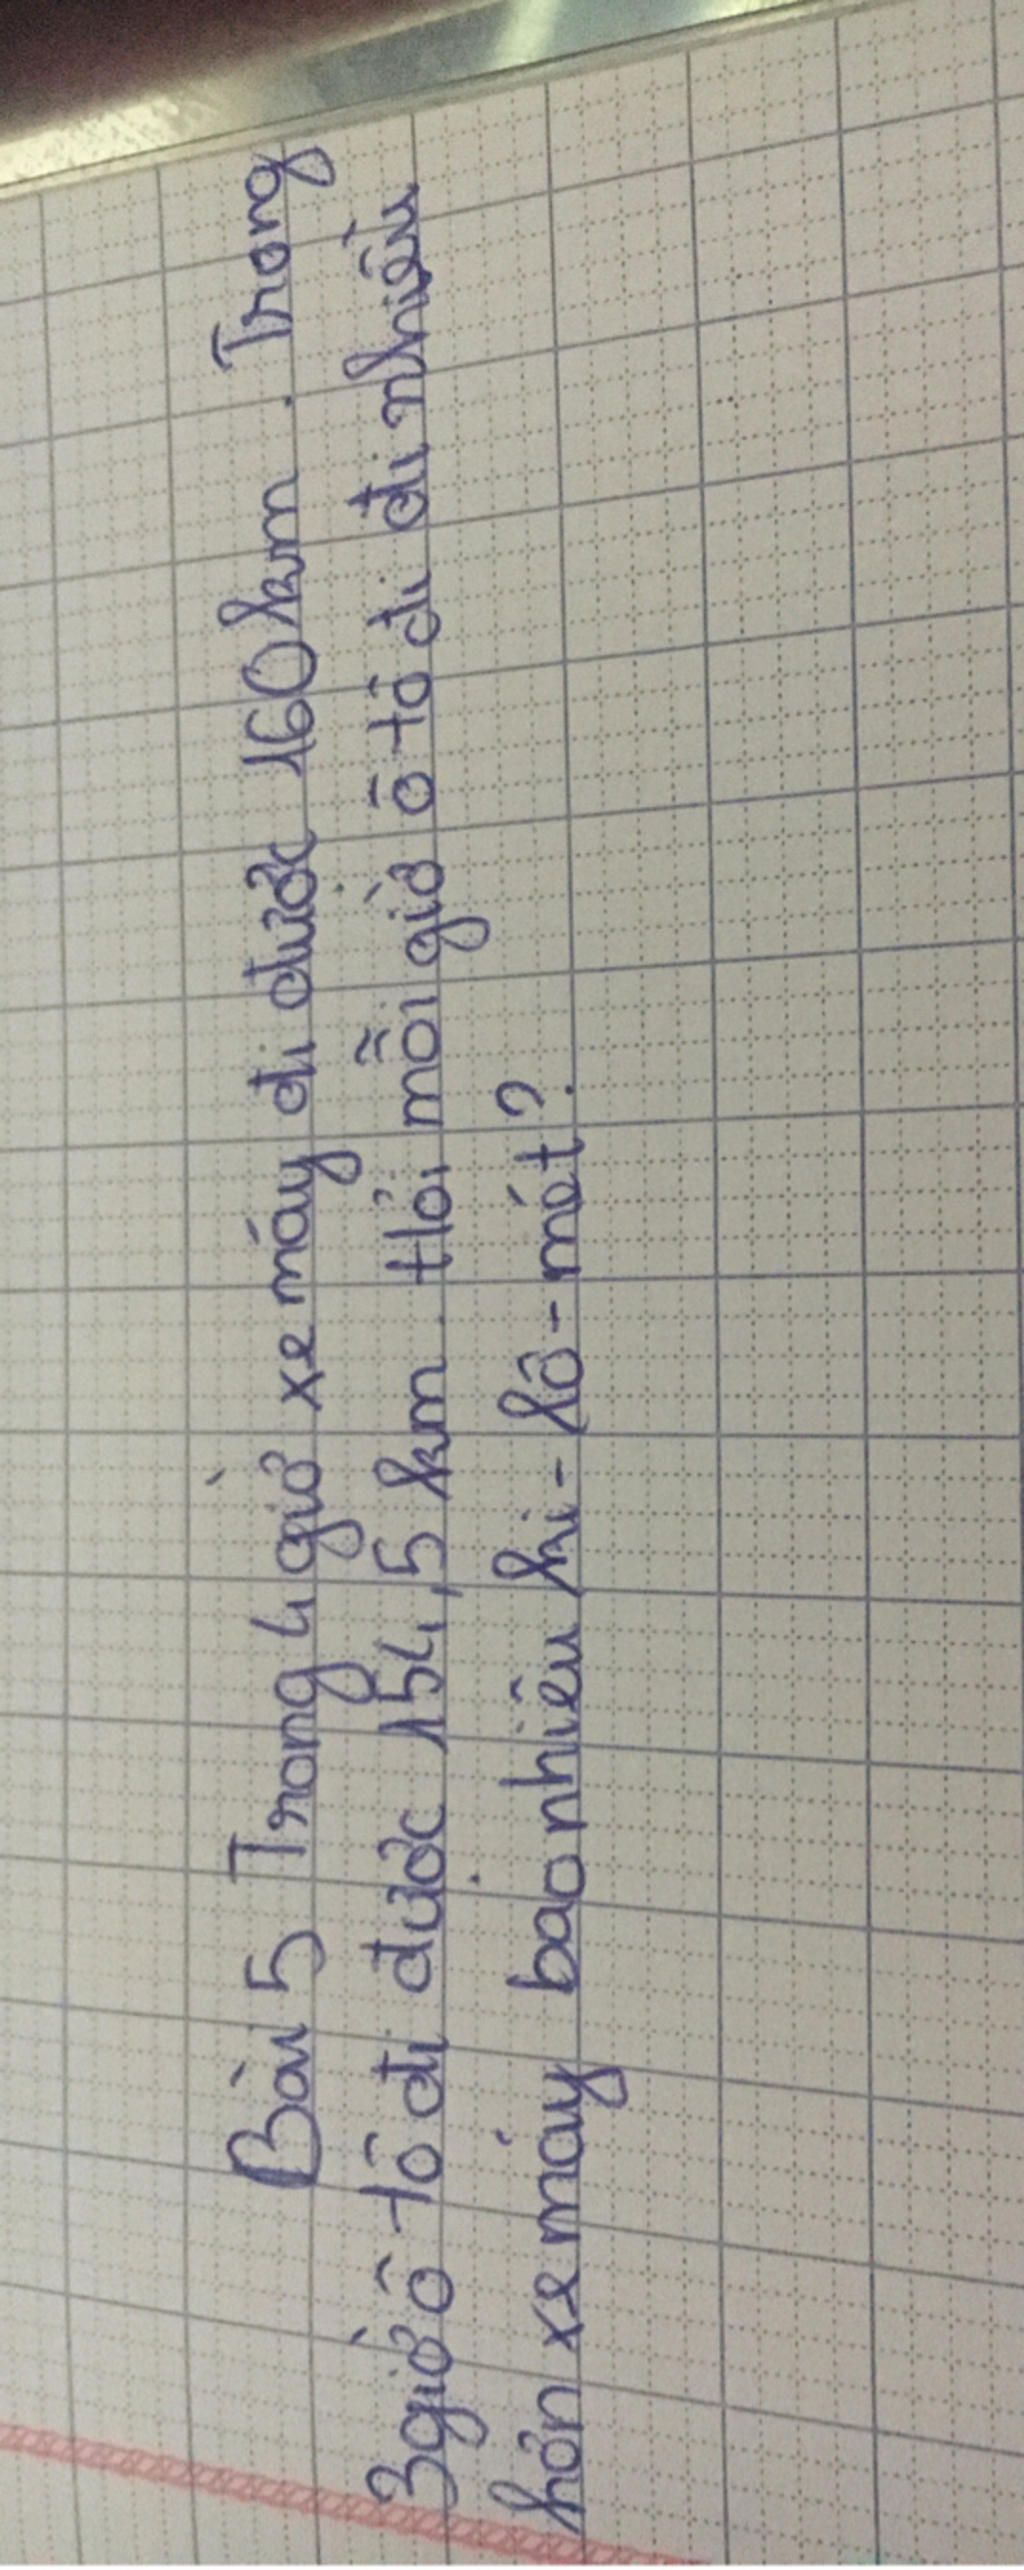 Bài 5 Trong 4 giờ xe máy đi được 160km. Trong
3 giờ ô tô đi được 154,5 km. Hỏi mỗi giờ ô tô đi đi nhiều
hơn xe máy bao nhiêu ki-lô-mét?